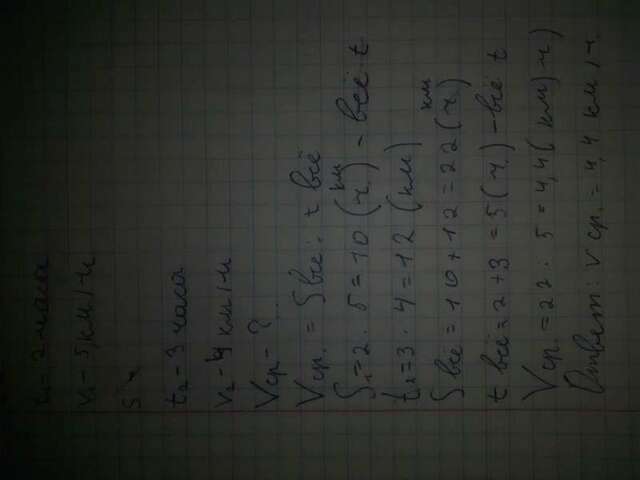 t₁ = 2 часа
V₁ - 5 км/ч
S
t₂ - 3 часа
V₂ - 4 км/ч
Vср - ?
Vср. = Sвсё : t всё
S₁ = 2 · 5 = 10 (км) - всё t
t₂ = 3 · 4 = 12 (км)
S всё = 10 + 12 = 22 (км)
t всё = 2 + 3 = 5 (ч) - всё t
Vср. = 22 : 5 = 4,4 (км/ч)
Ответ: V ср. = 4,4 км/ч.